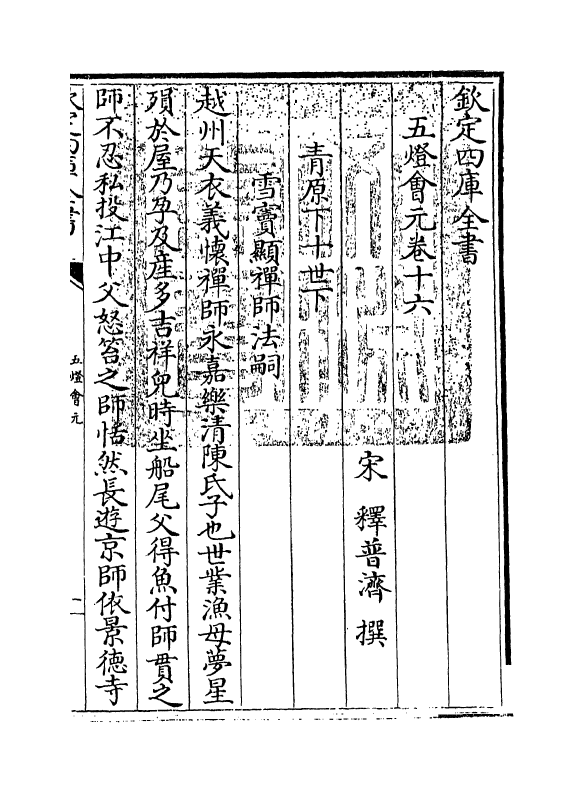 欽定四庫全書
五燈會元卷十六
宋 釋普濟 撰
青原下十世下
雪竇顯禪師法嗣
越州天衣義懷禪師永嘉樂清陳氏子也世業漁母夢星
殞於屋乃孕及産多吉祥兒時坐船尾父得魚付師貫之
師不忍私投江中父怒笞之師恬然長遊京師依景德寺
五燈會元